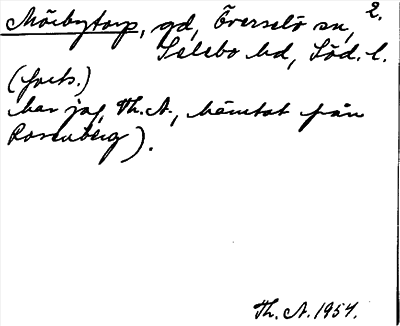 2.
Mörbytorp, gd, Överselö sn,
Selebo hd, Söd. l.
(forts.)
har jag, Th. A., hämtat från
Rosenberg).
Th. A. 1954.